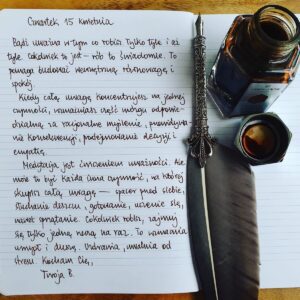 Czwartek 15 kwietnia
Bądź uważna w tym co robisz. Tylko tyle i aż
tyle. Cokolwiek to jest – rób to świadomie. To
pomaga budować wewnętrzną równowagę i
spokój.
Kiedy całą uwagę koncentrujesz na jednej
czynności, wzmacniasz część mózgu odpowie-
dzialną za racjonalne myślenie, przewidywa-
nie konsekwencji, podejmowanie decyzji i
empatię.
Medytacja jest ćwiczeniem uważności. Ale
może to być każda inna czynność, na której
skupisz całą uwagę — spacer przed siebie,
słuchanie deszczu, gotowanie, uczenie się,
nawet sprzątanie. Cokolwiek robisz, zajmuj
się tylko jedną rzeczą na raz. To wzmacnia
umysł i duszę. Uzdrawia, uwalnia od
stresu. Kocham Cię,
Twoja B.